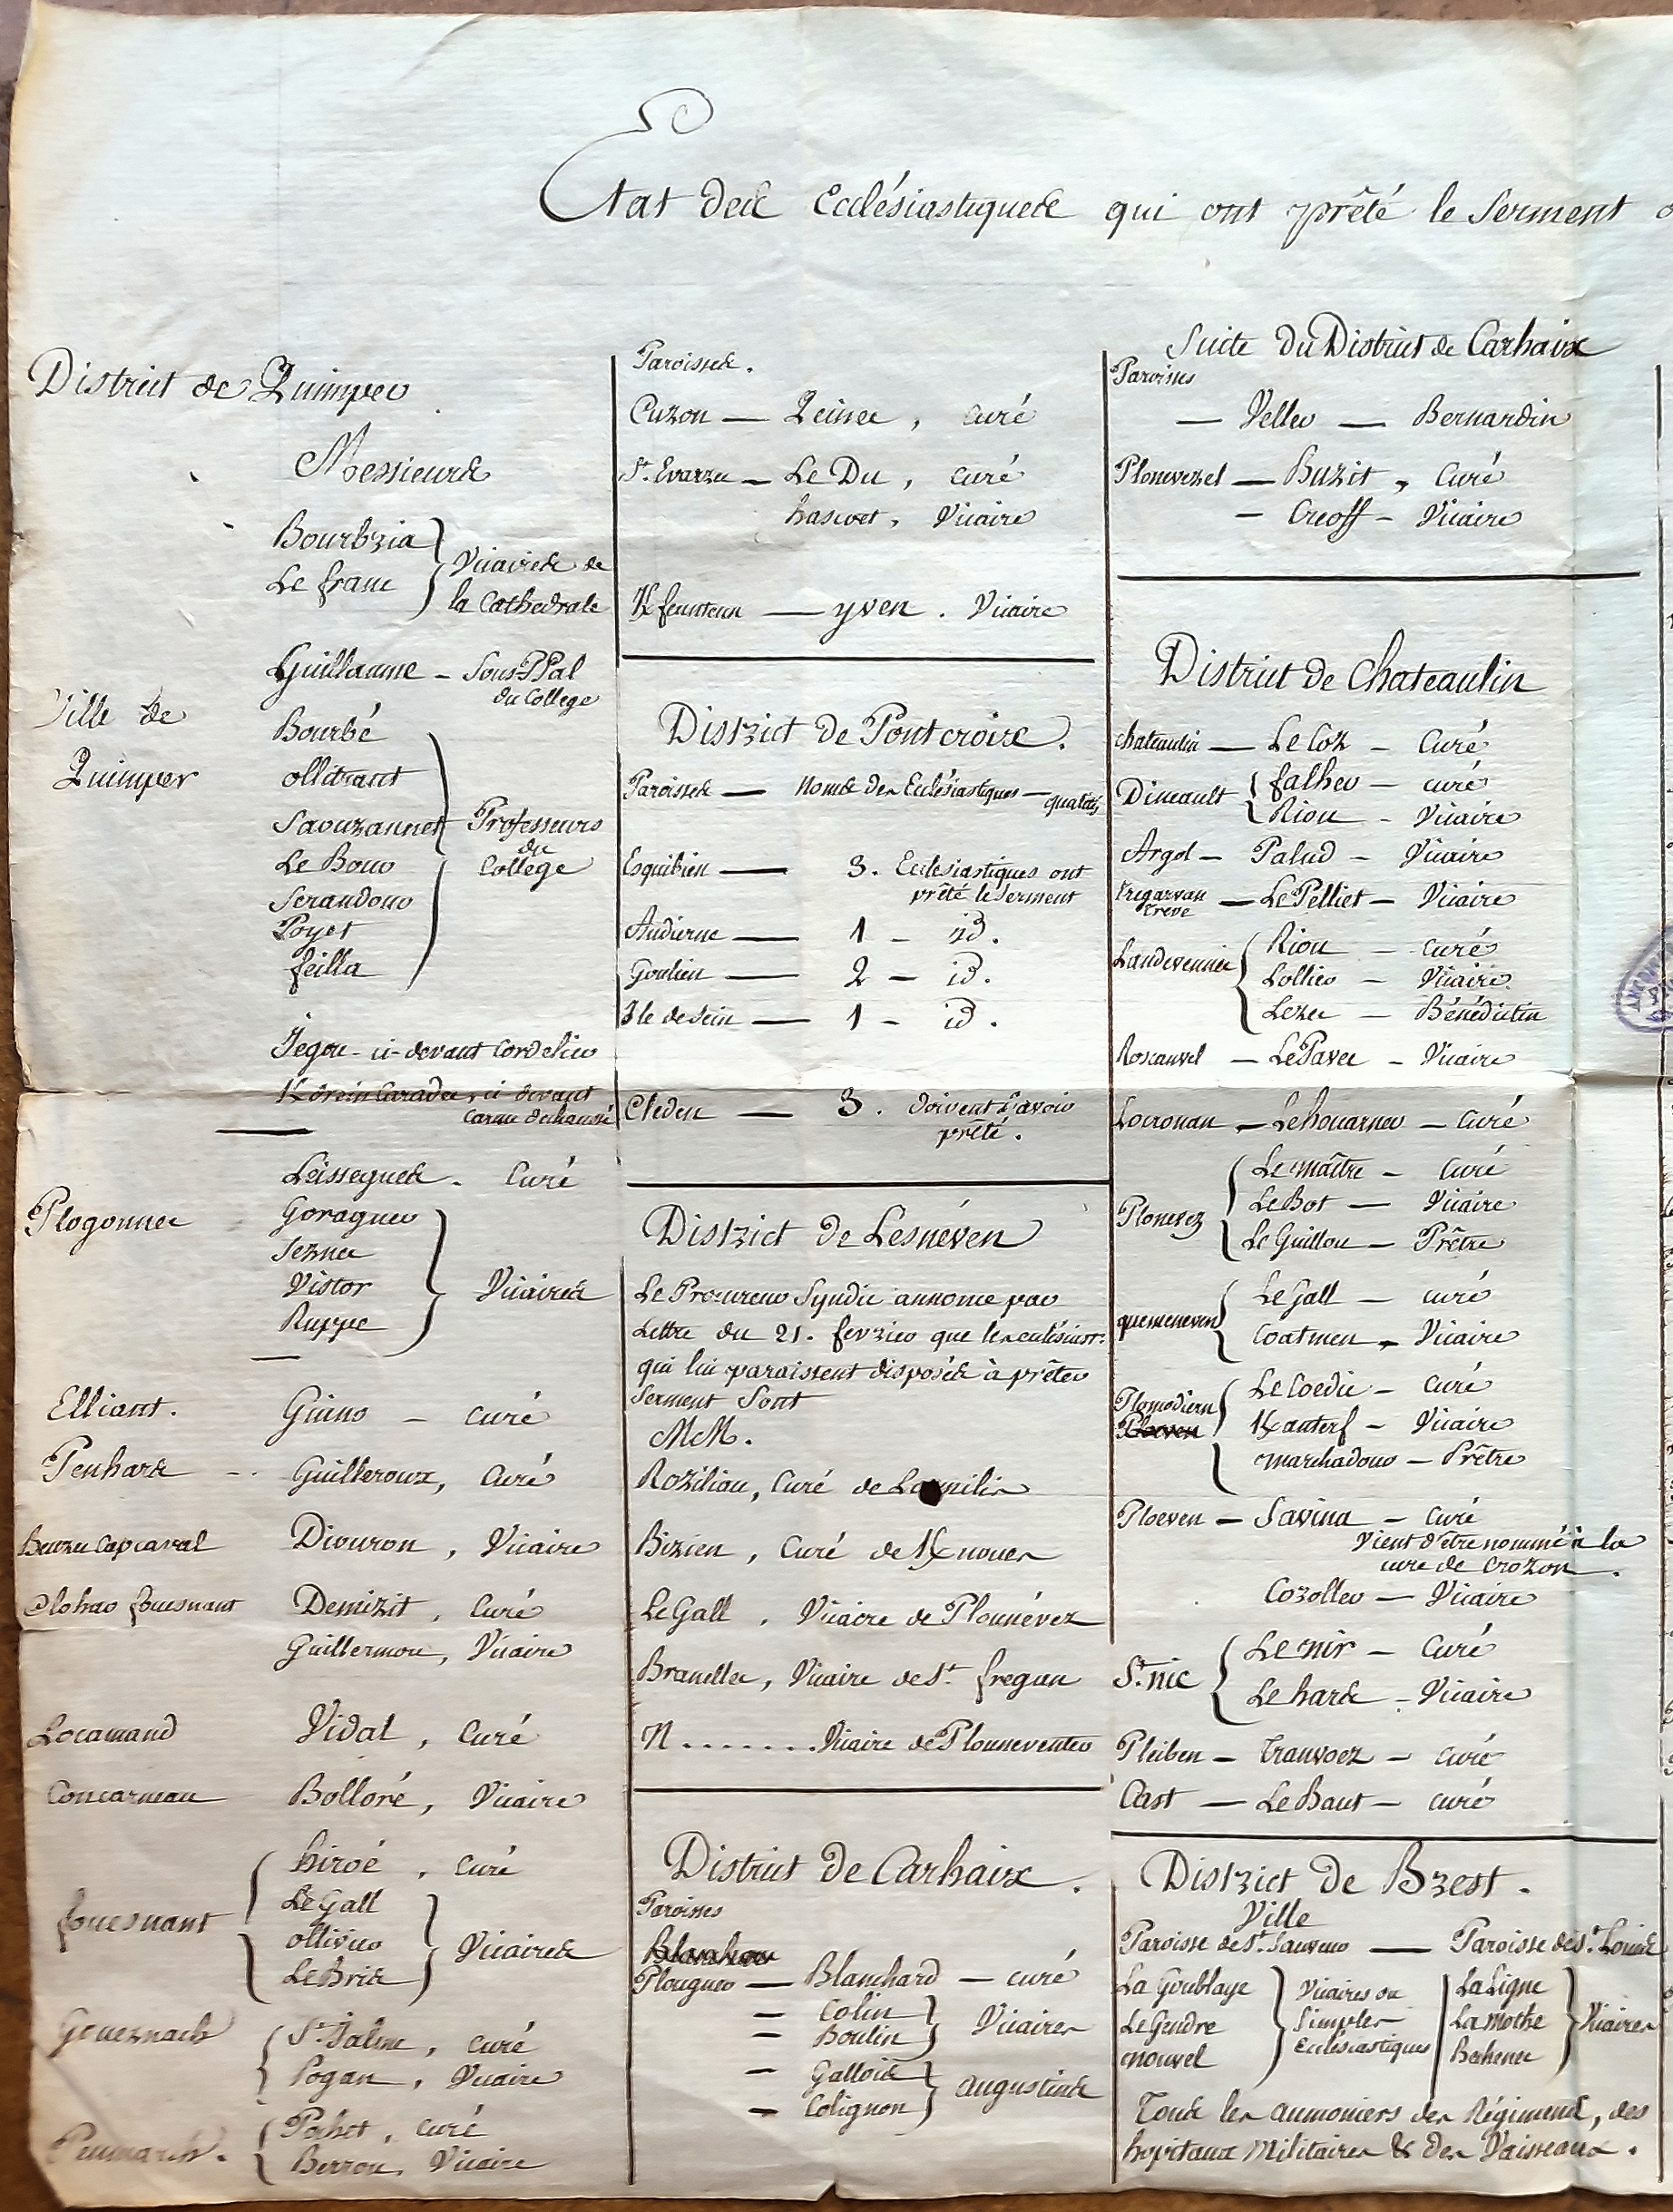 Etat des Ecclésiastiques qui ont prêté le Serment
District de Quimper
Messieurs
Bourbria
Le franc
Vicaires de
la Cathedrale
Guillaume - Sous Ppal
du College
Ville de
Quimper
Bourbé
ollitrant
Saouzannet
Le Bour
Serandour
Poyet
feilla
Professeurs
du
College
Jegou - ci-devant Cordelier
ci devant
Carme dechaussé
Plogonnec
Leissegues - Curé
Goraguer
Seznec
Vistor
Ruppe
Vicaires
Elliant. Guino - Curé
Penhars - Guilleroux, Curé
Beuzec Capcaval Divuron, Vicaire
Clohar fouesnant Demizit, Curé
Guillermou, Vicaire
Locamand Vidal, Curé
Concarneau Bolloré, Vicaire
fouesnant
hiroé, Curé
Le Gall
ollivier
Le Bris
Vicaires
Gouesnach
St Jalme, curé
Pogan, Vicaire
Penmarch.
Pohet, curé
Berrou, Vicaire
Paroisses.
Cuzon — Queinec, Curé
St. Evarzec — Le Du, Curé
hascoet, Vicaire
Kfeunteun — yven. Vicaire
District de Pontcroix.
Paroisses — Noms des Ecclésiastiques — qualités
Esquibien — 3. Ecclesiastiques ont
prêté le Serment
Audierne — 1 - id.
Goulien — 2 - id.
Ile de Sein — 1 - id.
Cleden — 3. doivent l'avoir
prêté.
District de Lesneven
Le Procureur Syndic annonce par
Lettre du 21. fevrier que les eclésiast.
qui lui paraissent disposés à prêter
Serment Sont
MM.
Roziliou, Curé de
Bizien, Curé de Knoues
Le Gall, Vicaire de Plounévez
Branellec, Vicaire de St. fregan
N....... Vicaire de Plouneventer
District de Carhaix.
Paroisses
Plouguer — Blanchard — curé
— Colin
— Boulin
Vicaires
— Gallois
— Colignon
augustins
Suite du District de Carhaix
Paroisses
— Veller — Bernardin
Plonevezel — Buzit, Curé
— Creoff - Vicaire
District de Chateaulin
chateaulin — Le Coz - Curé
Dineault
falher - curé
Riou - Vicaire
Argol - Palud - Vicaire
Tregarvan
treve
— Le Pelliet - Vicaire
Landevennec
Riou - curé
Lollier - Vicaire
Lezec - Bénédictin
Roscanvel - Le Pavec - Vicaire
Locronan - Lehouarner - Curé
Plonevez
Le maître - Curé
Le Bot - Vicaire
Le Guillou - Prêtre
quemeneven
Le Gall - curé
Coatmen - Vicaire
Plomodiern
Ploeven
Le Coedic - Curé
Kanterf - Vicaire
marchadour - Prêtre
Ploeven - Savina - Curé
Vient d'être nommé à la
cure de Crozon.
Cozoller - Vicaire
St. nic
Le nir - Curé
Le hars - Vicaire
Pleiben - tranvoez - curé
Cast - Le Baut - curé
District de Brest.
Ville
Paroisse de St. Sauveur — Paroisse de St. Louis
La Goublaye
Le Gendre
nouvel
Vicaires ou
Simples
Ecclésiastiques
La Ligne
La mothe
Bechenec
Vicaires
Tous les aumoniers des Régimens, des
hopitaux Militaires & des Vaisseaux.